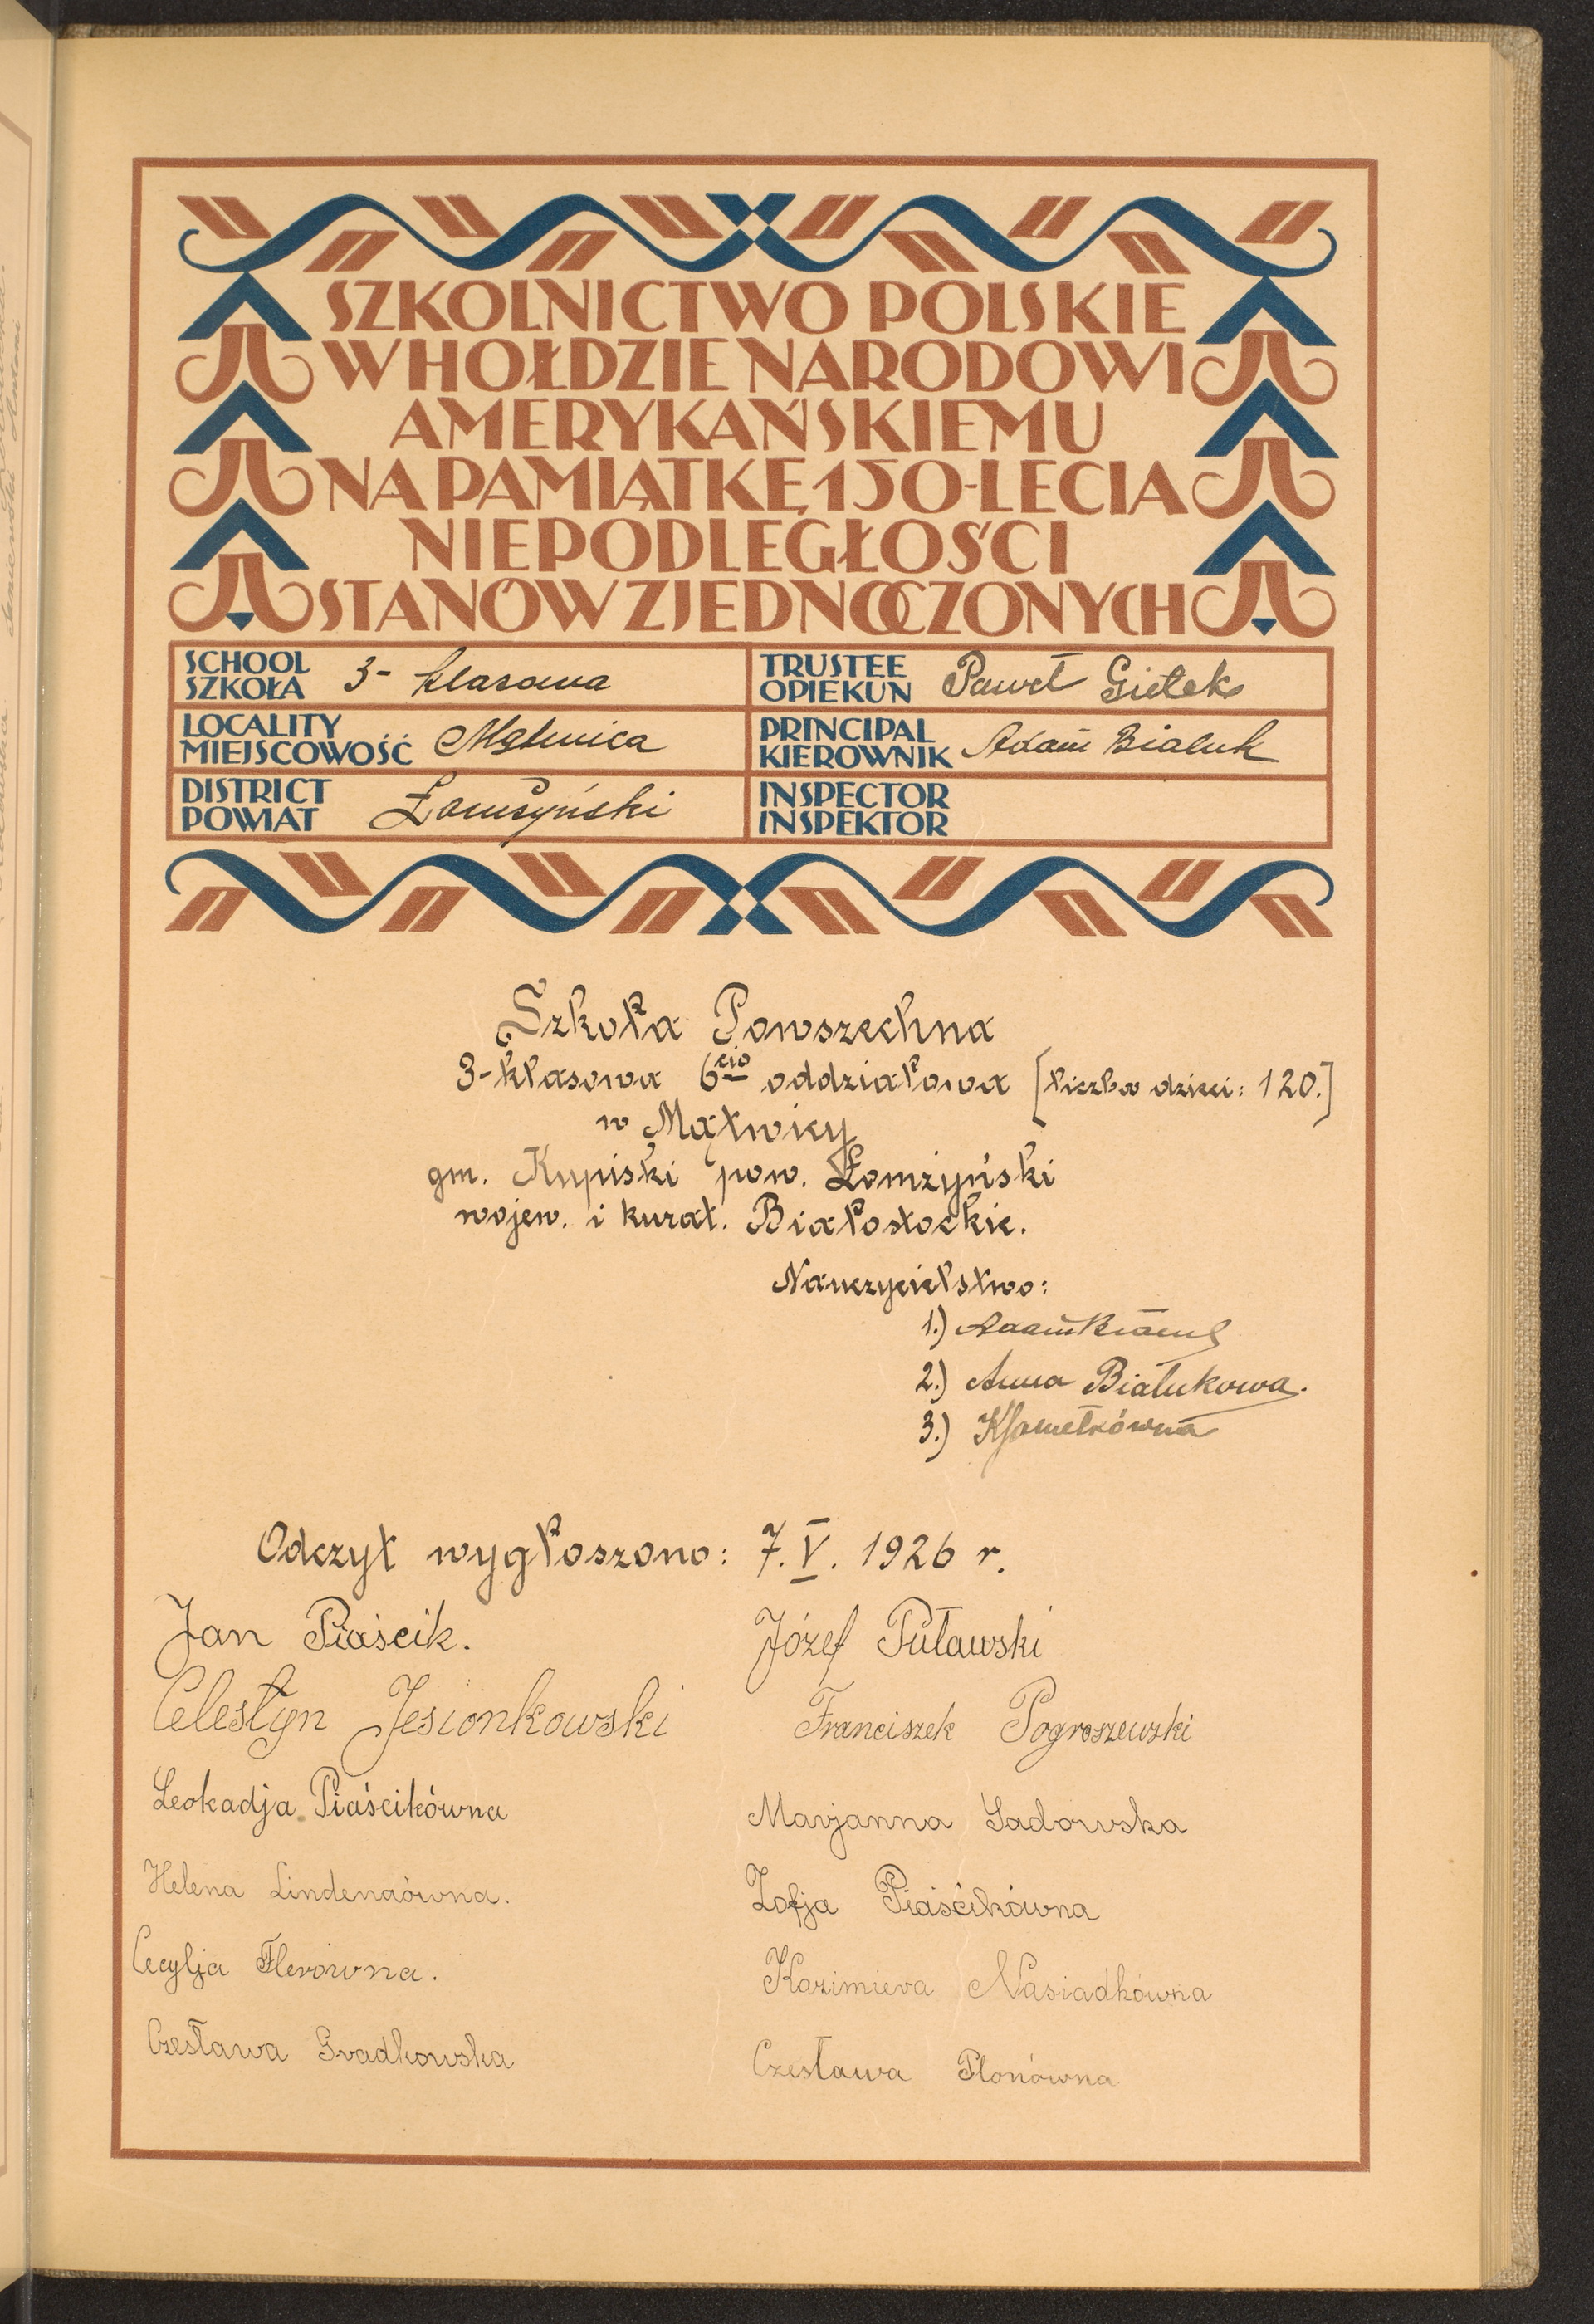 SZKOLNICTWO POLSKIE
W HOŁDZIE NARODOWI
AMERYKAŃSKIEMU
NA PAMIĄTKĘ 150-LECIA
NIEPODLEGŁOŚCI
STANÓW ZJEDNOCZONYCH
SCHOOL
SZKOŁA 3-klasowa
TRUSTEE
OPIEKUN Paweł Giełek
LOCALITY
MIEJSCOWOŚĆ Mątwica
PRINCIPAL
KIEROWNIK Adam Białuk
DISTRICT
POWIAT Łomżyński
INSPECTOR
INSPEKTOR
Szkoła Powszechna
3-klasowa 6cio oddziałowa [liczba dzieci: 120.]
w Mątwicy
gm. Kupiski pow. Łomżyński
wojew. i kurat. Białostockie.
Nauczycielstwo:
1.) Adam Białuk
2.) Anna Białukowa.
3.)
Odczyt wygłoszono: 7.V. 1926 r.
Jan Piaścik.
Józef Puławski
Celestyn Jesionkowski
Franciszek Pogroszewski
Leokadja Piaścikówna
Marjanna Sadowska
Helena Lindenaówna.
Zofja Piaścikówna
Cecylja Flerówna.
Kazimiera Nasiadkówna
Czesława Gradkowska
Czesława Plonówna